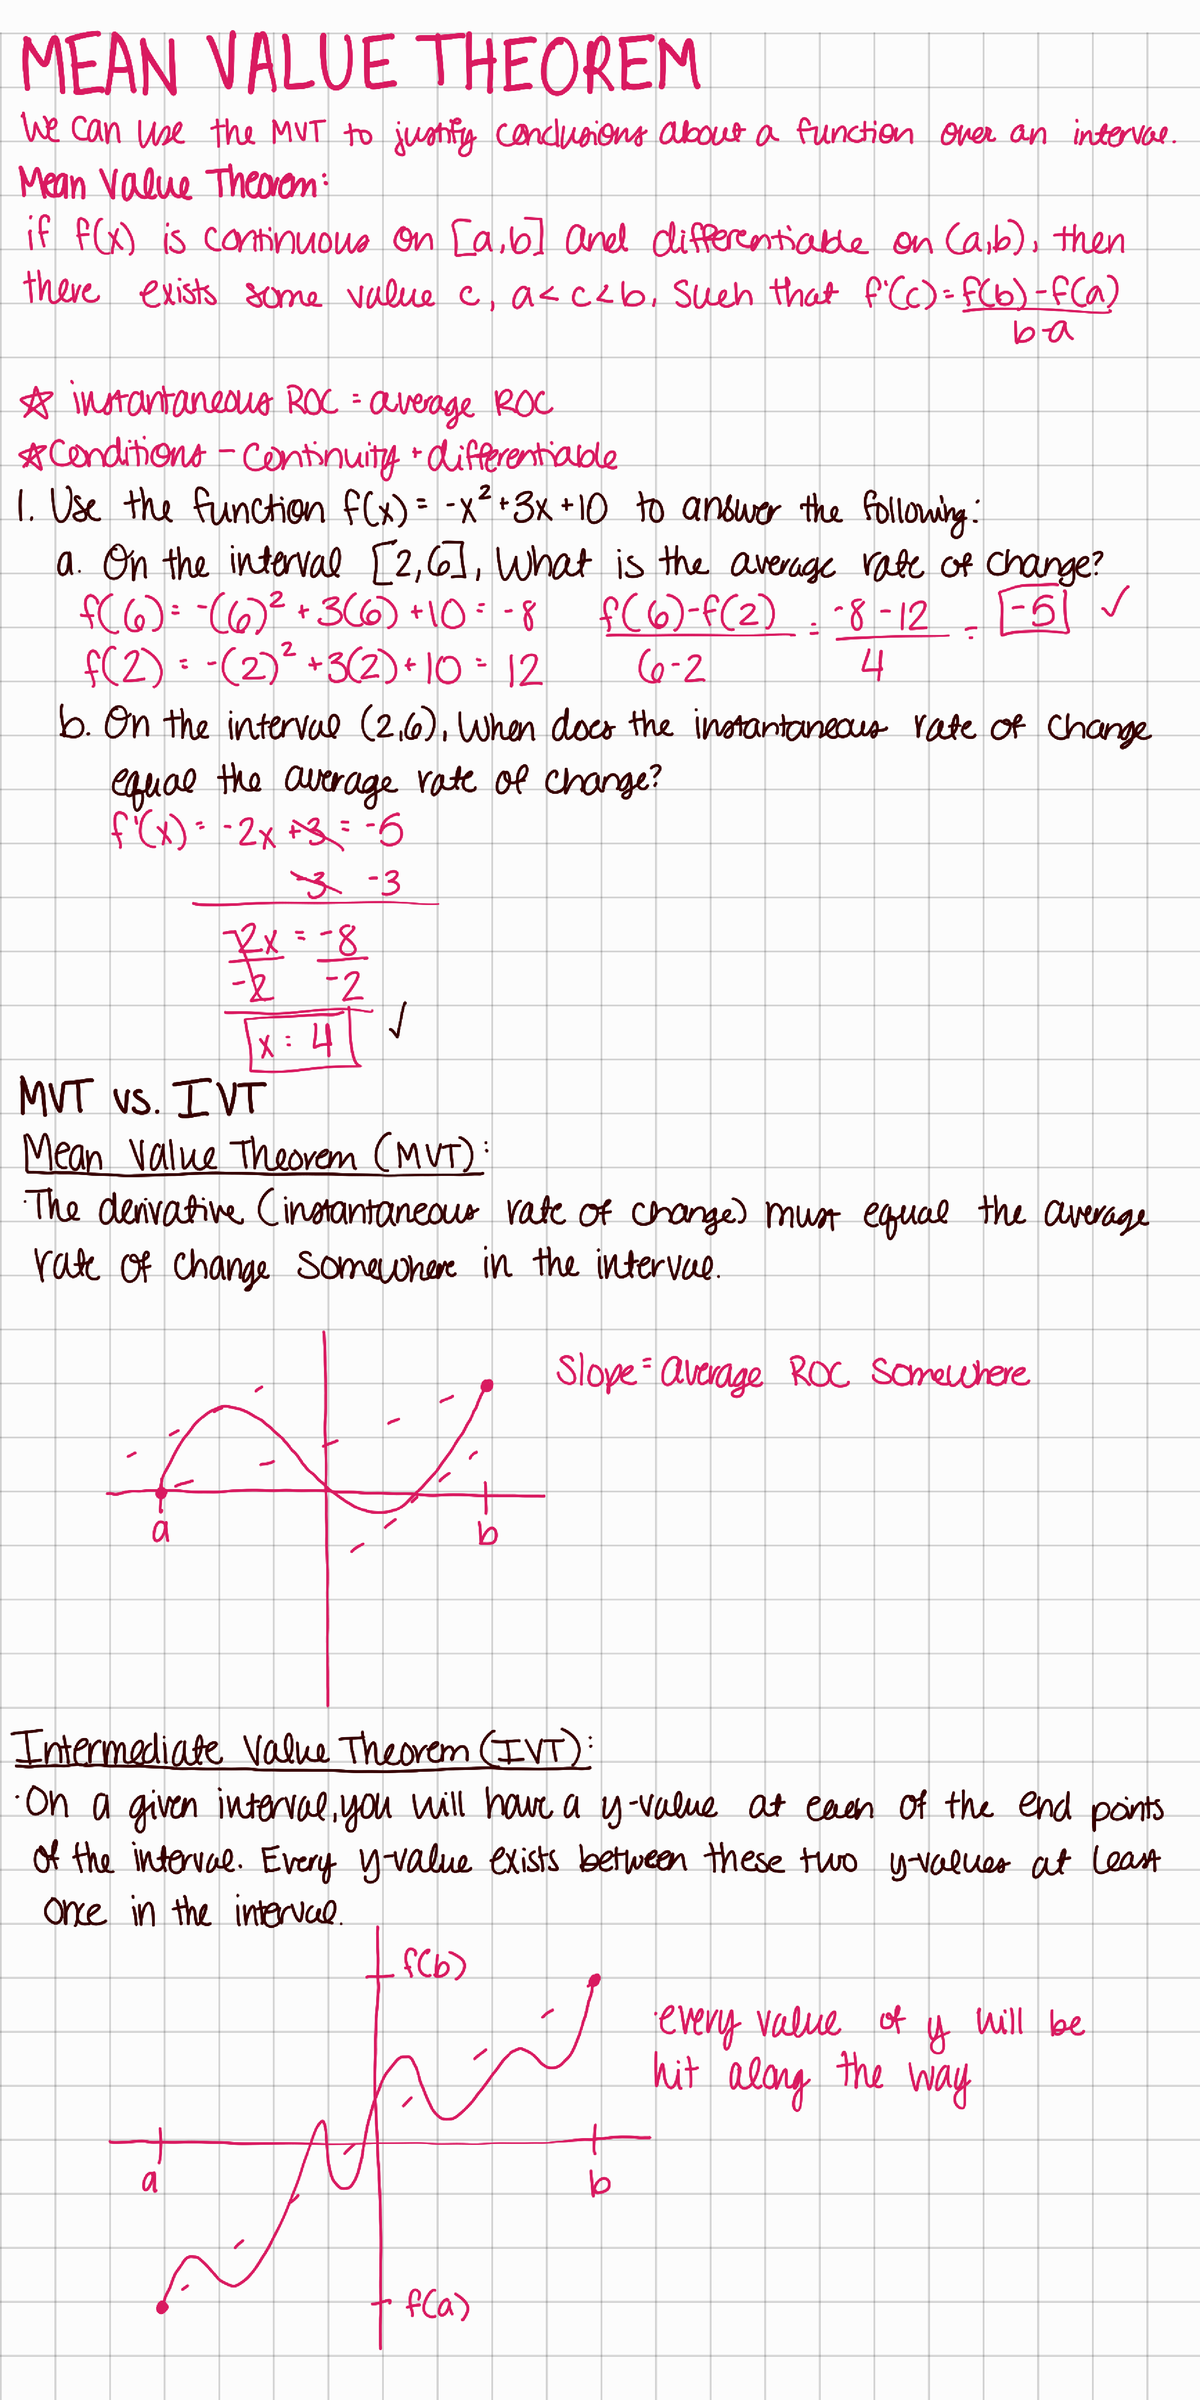 MEAN VALUE THEOREM
We can use the MVT to justify conclusions about a function over an interval.
Mean Value Theorem:
if f(x) is continuous on [a,b] and differentiable on (a,b), then
there exists some value c, a<c<b, such that f'(c)= f(b)-f(a)
b-a
☆ instantaneous ROC = average ROC
☆ Conditions - continuity + differentiable
1. Use the function f(x) = -x²+3x+10 to answer the following:
a. On the interval [2,6], what is the average rate of change?
f(6) = -(6)² + 3(6) +10 = -8 f(6)-f(2) = -8-12 = -5 ✓
f(2) = -(2)² +3(2)+10 = 12 6-2 4
b. On the interval (2,6), when does the instantaneous rate of change
equal the average rate of change?
f'(x) = -2x +3 = -5
-3 -3
-2x = -8
-2 -2
x = 4 ✓
MVT vs. IVT
Mean Value Theorem (MVT):
·The derivative (instantaneous rate of change) must equal the average
rate of change somewhere in the interval.
Slope = average ROC somewhere
a b
Intermediate Value Theorem (IVT):
·On a given interval, you will have a y-value at each of the end points
of the interval. Every y-value exists between these two y-values at least
once in the interval.
f(b)
·every value of y will be
hit along the way
a b
f(a)